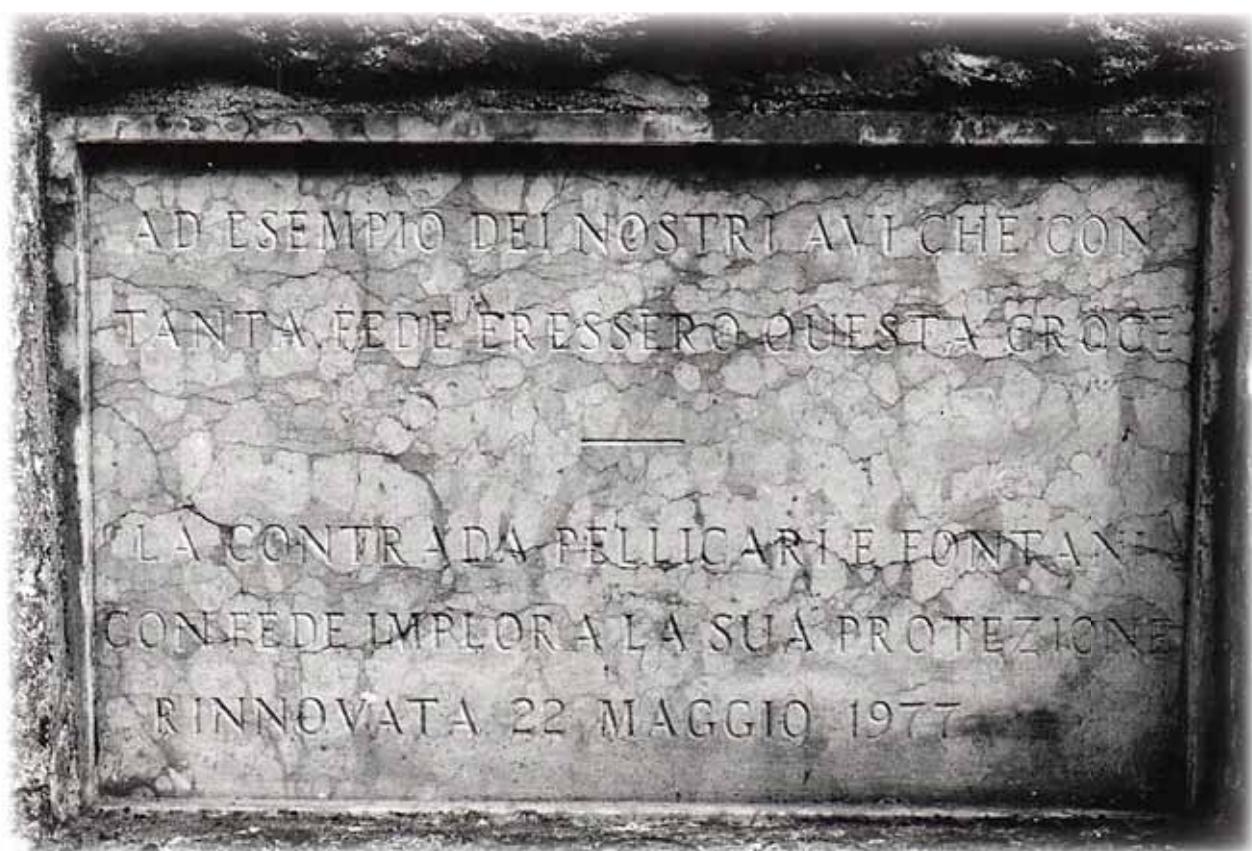 AD ESEMPIO DEI NOSTRI AVI CHE CON
TANTA FEDE ERESSERO QUESTA CROCE
LA CONTRADA PELLICARI E FONTANA
CON FEDE IMPLORA LA SUA PROTEZIONE
RINNOVATA 22 MAGGIO 1977